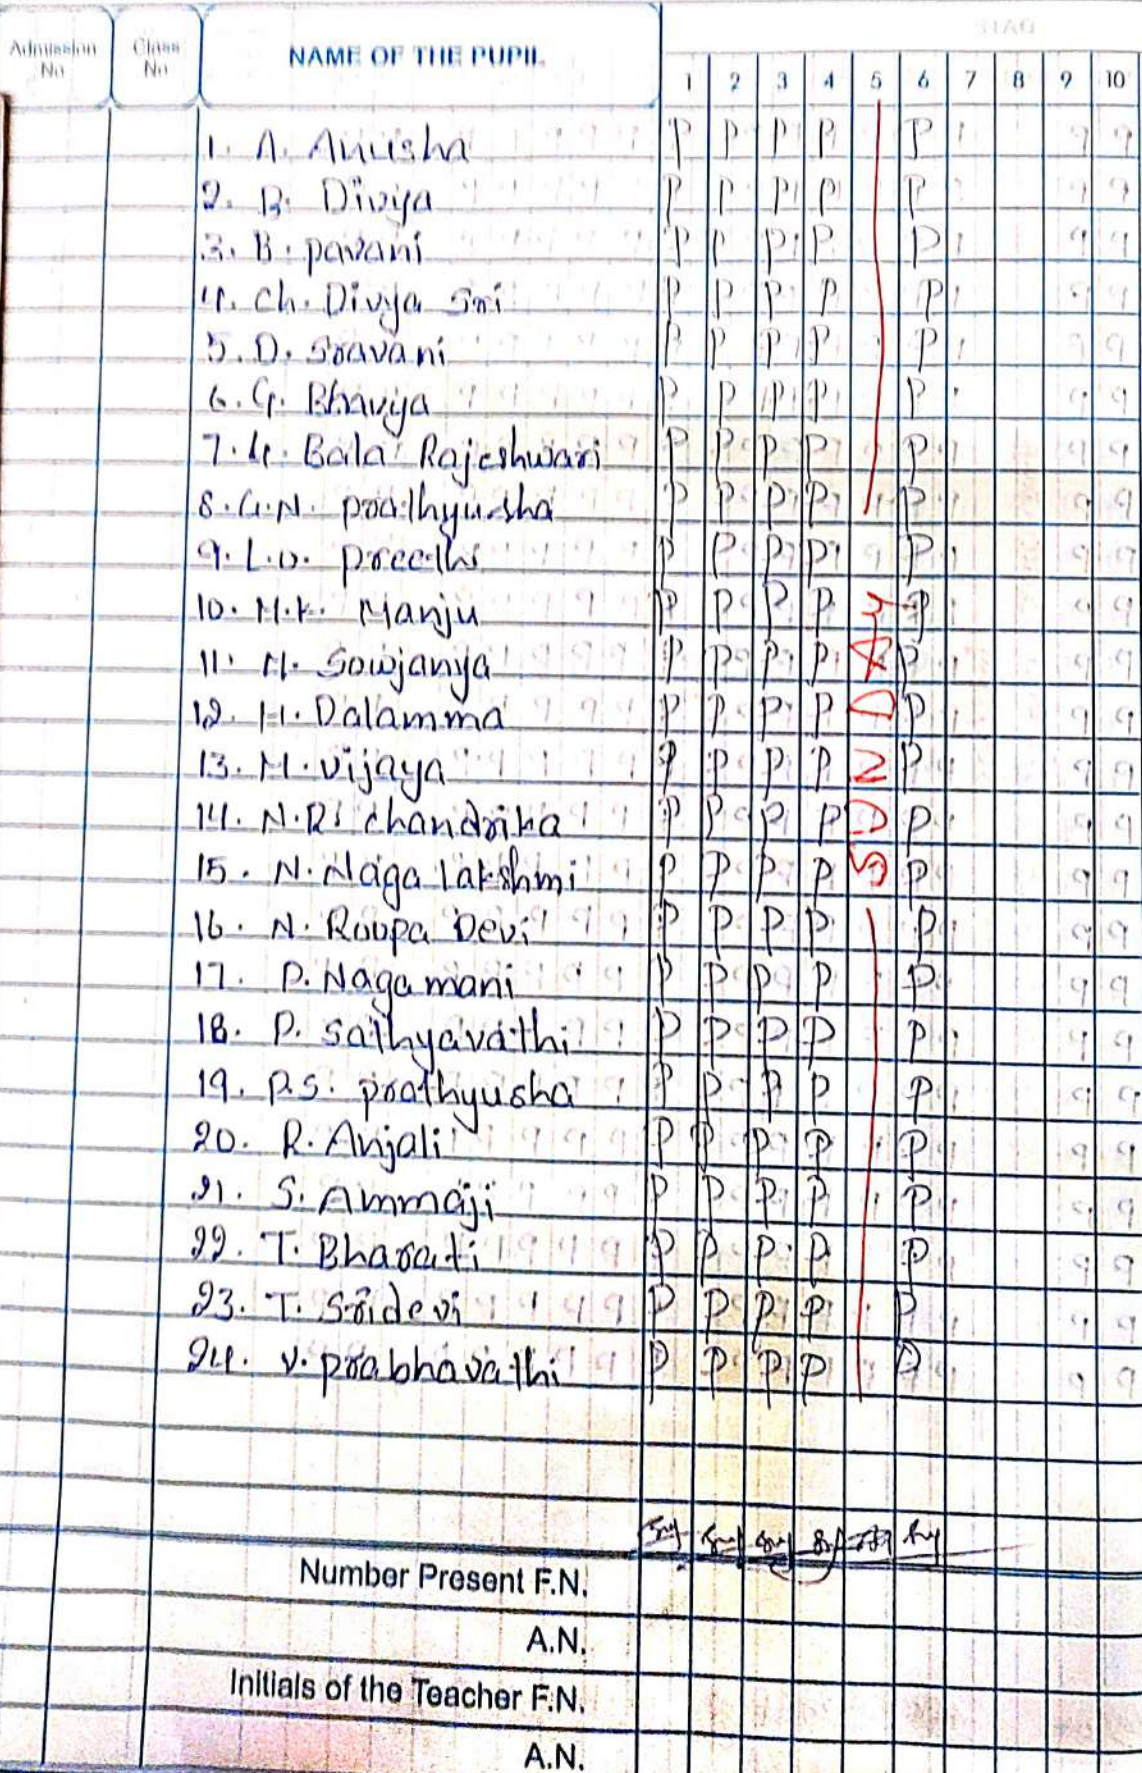 Admission No
Class No
NAME OF THE PUPIL
1 2 3 4 5 6 7 8 9 10
1. A. Anusha P P P P P
2. B. Divya P P P P P
3. B. pavani P P P P P
4. Ch. Divya Sri P P P P P
5. D. Sravani P P P P P
6. G. Bhavya P P P P P
7. G. Bala Rajeshwari P P P P P
8. G.N. prathyusha P P P P P
9. L.D. preethi P P P P P
10. M.K. Manju P P P P P
11. M. Sowjanya P P P P P
12. M. Dalamma P P P P P
13. M. vijaya P P P P P
14. N.R. chandrika P P P P P
15. N. Naga lakshmi P P P P P
16. N. Roopa Devi P P P P P
17. P. Nagamani P P P P P
18. P. Sathyavathi P P P P P
19. P.S. prathyusha P P P P P
20. R. Anjali P P P P P
21. S. Ammaji P P P P P
22. T. Bharati P P P P P
23. T. Sridevi P P P P P
24. V. prabhavathi P P P P P
SUNDAY
Number Present F.N.
A.N.
Initials of the Teacher F.N.
A.N.